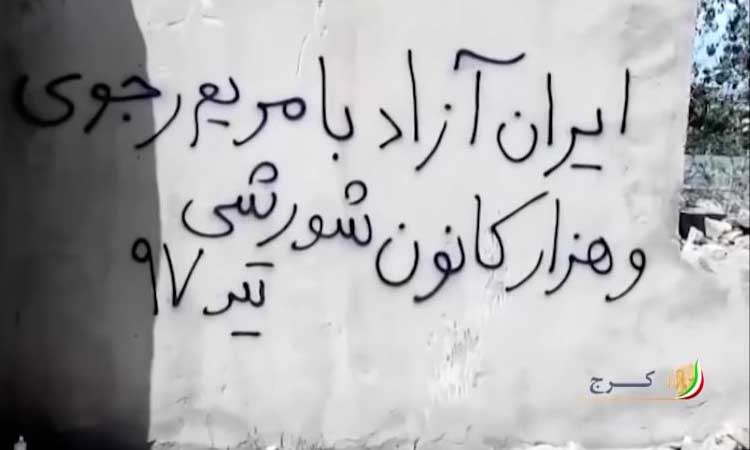 ایران آزاد با مریم رجوی
و هزار کانون شورشی
تیر ۹۷
کرج